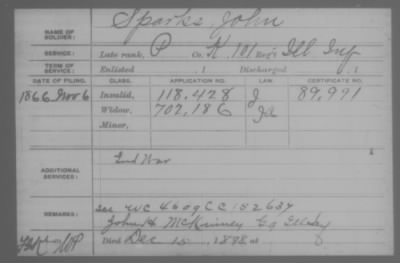 NAME OF SOLDIER: Sparks, John
SERVICE: Late rank, P Co. K, 101 Reg't Ill Inf
TERM OF SERVICE: Enlisted , 1 Discharged , 1
DATE OF FILING. CLASS. APPLICATION NO. LAW. CERTIFICATE NO.
1866 Nov 6 Invalid, 118,428 J 89,991
Widow, 702,186
Minor,
ADDITIONAL SERVICES: War
REMARKS: see WC CC 152637
John H McKinney Co
Died Dec 15, 1898 at